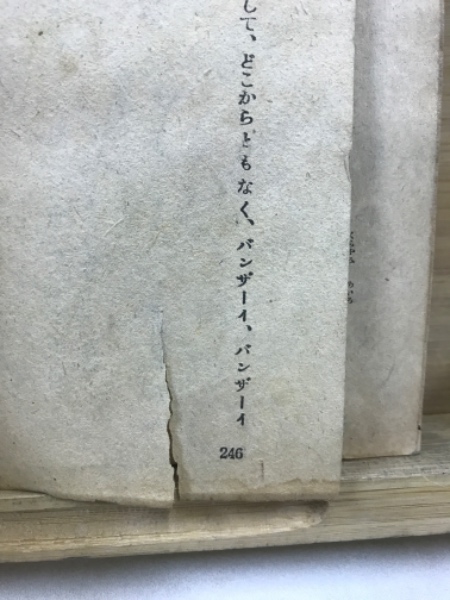 して、どこからともなく、バンザーイ、バンザーイ
246